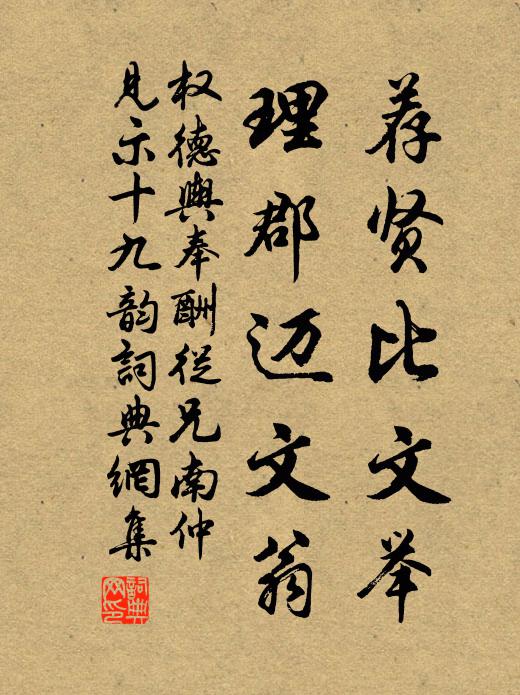 荐贤比文举
理郡迈文翁
权德舆奉酬从兄南仲
见示十九韵詞典網集
詞典网印